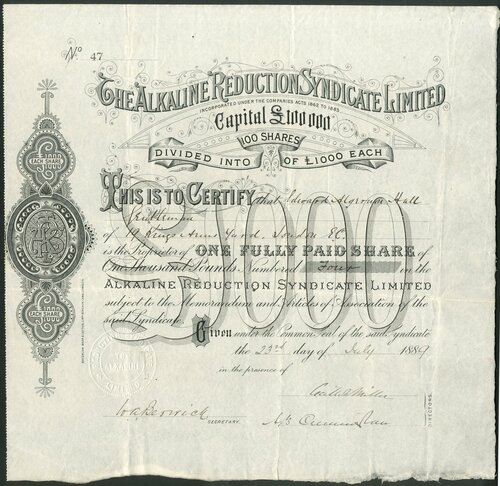 No 47
THE ALKALINE REDUCTION SYNDICATE LIMITED
INCORPORATED UNDER THE COMPANIES ACTS 1862 TO 1883
Capital £100000
100 SHARES
DIVIDED INTO OF £1000 EACH
£1000
EACH SHARE £1000
THIS IS TO CERTIFY that Edward Algernon Hall
Gentleman
of 19 Kings Arms Yard, London EC
is the Proprietor of ONE FULLY PAID SHARE of
One Thousand Pounds Numbered Four in the
ALKALINE REDUCTION SYNDICATE LIMITED
subject to the Memorandum and Articles of Association of the
said Syndicate.
EACH SHARE £1000
Given under the Common Seal of the said Syndicate
the 23rd day of July 1889
in the presence of
SECRETARY
DIRECTORS